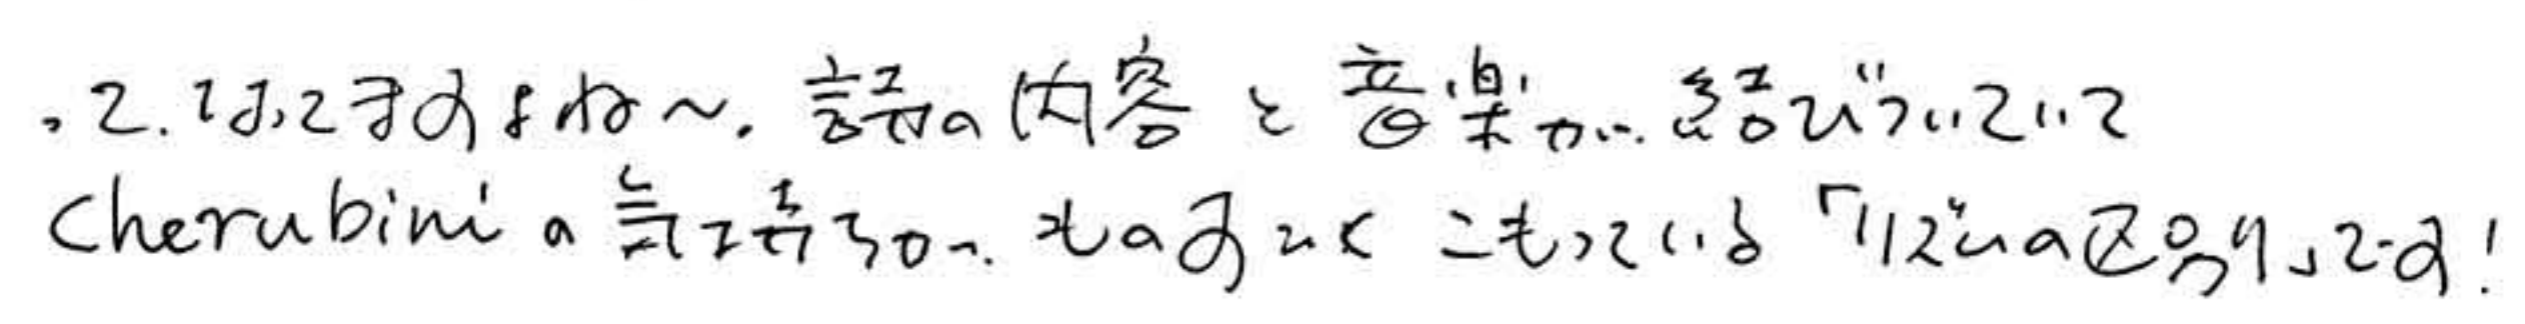 って、なってますよね〜。詩の内容と音楽が結びついていて
Cherubiniの気持ちがものすごくこもっている「　　の区別」です！